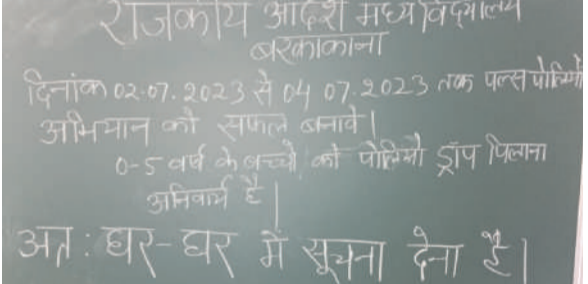 राजकीय आदर्श मध्य विद्यालय
बरकाकाना
दिनांक 02.07.2023 से 04 07.2023 तक पल्स पोलियो
अभियान को सफल बनावे।
0-5 वर्ष के बच्चों को पोलियो ड्रॉप पिलाना
अनिवार्य है।
अत: घर-घर में सूचना देना है।